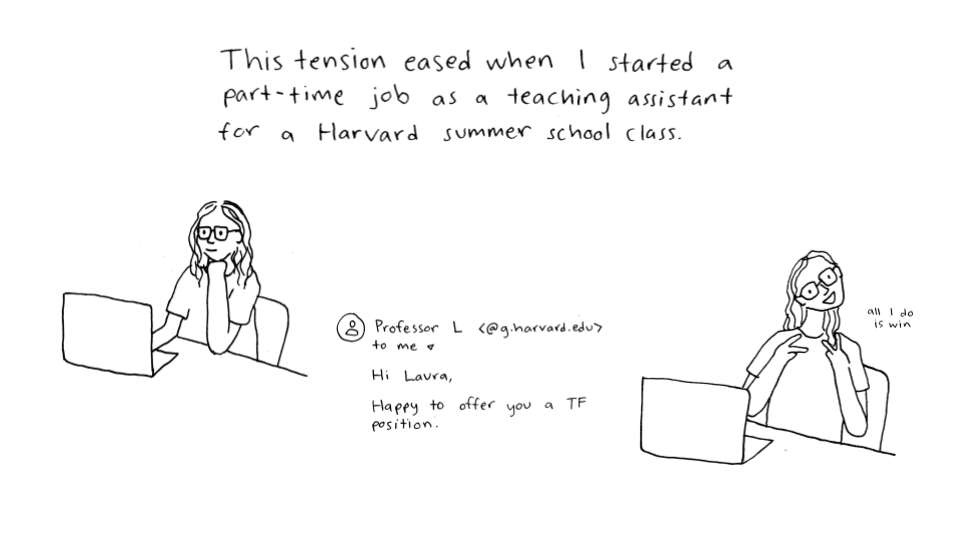 This tension eased when I started a
part-time job as a teaching assistant
for a Harvard summer school class.
Professor L <@g.harvard.edu>
to me ▿
Hi Laura,
Happy to offer you a TF
position.
all I do
is win